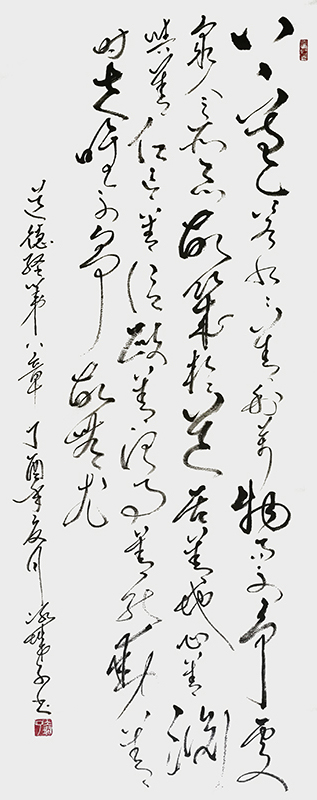 上善若水〻善利萬物而不爭處
眾人之所惡故幾於道居善地心善淵
與善仁言善信政善治事善能動善
時夫唯不爭故無尤
道德經第八章 丁酉年夏月 書